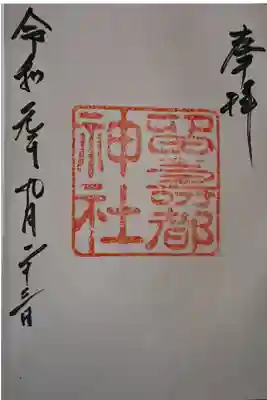 奉拝
留壽都
神社
令和元年九月二十三日